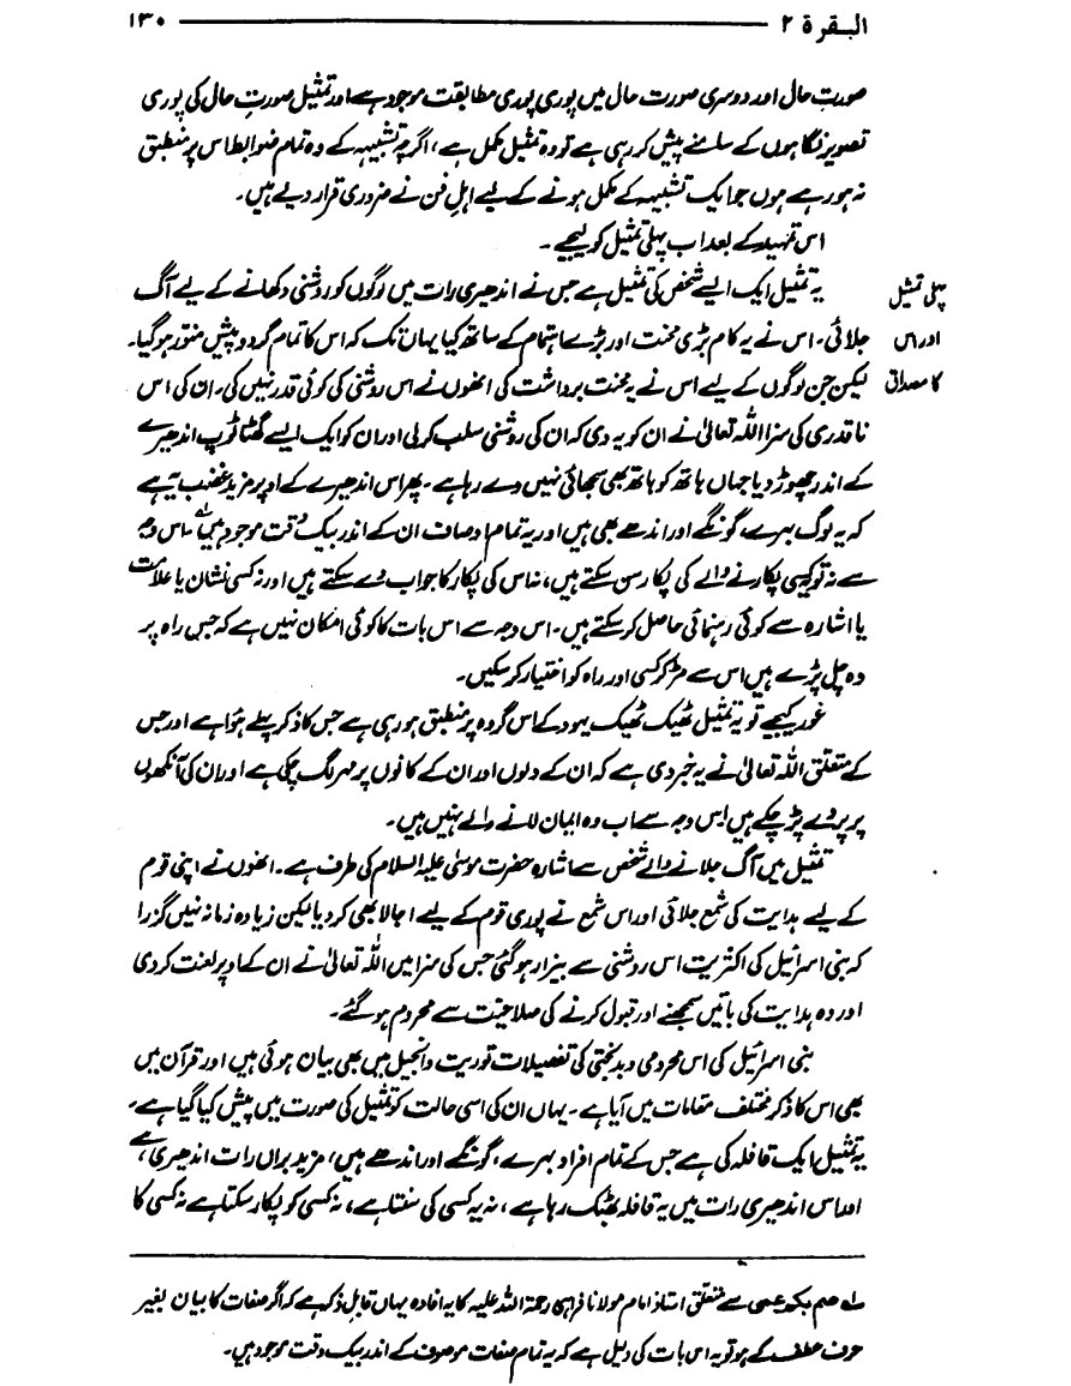 البقرۃ ۲ ——— ۱۳۰
صورتِ حال اور دوسری صورت حال میں پوری پوری مطابقت موجود ہے اور تمثیل صورتِ حال کی پوری
تصویر نگاہوں کے سامنے پیش کر رہی ہے تو وہ تمثیل مکمل ہے، اگرچہ تشبیہہ کے وہ تمام ضوابط اس پر منطبق
نہ ہو رہے ہوں جو ایک تشبیہہ کے مکمل ہونے کے لیے اہلِ فن نے ضروری قرار دیے ہیں۔
اس تمہید کے بعد اب پہلی تمثیل کو لیجیے۔
پہلی تمثیل
اور اس
کا مصداق
یہ تمثیل ایک ایسے شخص کی تمثیل ہے جس نے اندھیری رات میں لوگوں کو روشنی دکھانے کے لیے آگ
جلائی۔ اس نے یہ کام بڑی محنت اور بڑے اہتمام کے ساتھ کیا یہاں تک کہ اس کا تمام گرد و پیش منور ہو گیا۔
لیکن جن لوگوں کے لیے اس نے یہ محنت برداشت کی انھوں نے اس روشنی کی کوئی قدر نہیں کی۔ ان کی اس
ناقدری کی سزا اللہ تعالیٰ نے ان کو یہ دی کہ ان کی روشنی سلب کر لی اور ان کو ایک ایسے گھٹا ٹوپ اندھیرے
کے اندر چھوڑ دیا جہاں ہاتھ کو ہاتھ بھی سجھائی نہیں دے رہا ہے۔ پھر اس اندھیرے کے اوپر مزید غضب یہ ہے
کہ یہ لوگ بہرے، گونگے اور اندھے بھی ہیں اور یہ تمام اوصاف ان کے اندر بیک وقت موجود ہیں۔ اس وجہ
سے نہ تو کسی پکارنے والے کی پکار سن سکتے ہیں، نہ اس کی پکار کا جواب دے سکتے ہیں اور نہ کسی نشان یا علامت
یا اشارہ سے کوئی رہنمائی حاصل کر سکتے ہیں۔ اس وجہ سے اس بات کا کوئی امکان نہیں ہے کہ جس راہ پر
وہ چل پڑے ہیں اس سے مڑ کر کسی اور راہ کو اختیار کر سکیں۔
غور کیجیے تو یہ تمثیل ٹھیک ٹھیک یہود کے اس گروہ پر منطبق ہو رہی ہے جس کا ذکر پہلے ہوا ہے اور جس
کے متعلق اللہ تعالیٰ نے یہ خبر دی ہے کہ ان کے دلوں اور ان کے کانوں پر مہر لگ چکی ہے اور ان کی آنکھوں
پر پردے پڑ چکے ہیں اس وجہ سے اب وہ ایمان لانے والے نہیں ہیں۔
تمثیل میں آگ جلانے والے شخص سے اشارہ حضرت موسیٰ علیہ السلام کی طرف ہے۔ انھوں نے اپنی قوم
کے لیے ہدایت کی شمع جلائی اور اس شمع نے پوری قوم کے لیے اجالا بھی کر دیا لیکن زیادہ زمانہ نہیں گزرا
کہ بنی اسرائیل کی اکثریت اس روشنی سے بیزار ہو گئی جس کی سزا میں اللہ تعالیٰ نے ان کے اوپر لعنت کر دی
اور وہ ہدایت کی باتیں سمجھنے اور قبول کرنے کی صلاحیت سے محروم ہو گئے۔
بنی اسرائیل کی اس محرومی و بدبختی کی تفصیلات توریت و انجیل میں بھی بیان ہوئی ہیں اور قرآن میں
بھی اس کا ذکر مختلف مقامات میں آیا ہے۔ یہاں ان کی اسی حالت کو تمثیل کی صورت میں پیش کیا گیا ہے۔
یہ تمثیل ایک قافلہ کی ہے جس کے تمام افراد بہرے، گونگے اور اندھے ہیں، مزید براں رات اندھیری ہے،
اور اس اندھیری رات میں یہ قافلہ بھٹک رہا ہے، نہ یہ کسی کی سنتا ہے، نہ کسی کو پکار سکتا ہے نہ کسی کا
لہ صم بکم عمی سے متعلق استاذ امام مولانا فراہی رحمۃ اللہ علیہ کا یہ افادہ یہاں قابلِ ذکر ہے کہ اگر صفات کا بیان بغیر
حرف عطف کے ہو تو یہ اس بات کی دلیل ہے کہ یہ تمام صفات موصوف کے اندر بیک وقت موجود ہیں۔